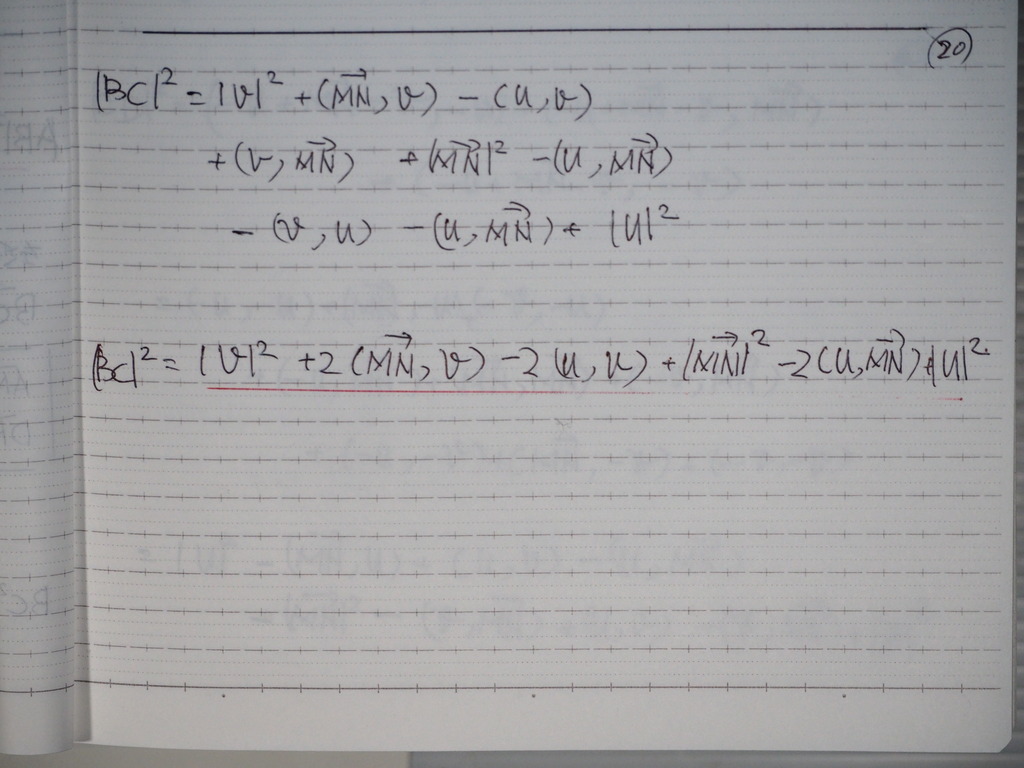 20
|BC|² = |V|² + (MN⃗, V) - (U, V)
+ (V, MN⃗) + |MN⃗|² - (U, MN⃗)
- (V, U) - (U, MN⃗) + |U|²
|BC|² = |V|² + 2(MN⃗, V) - 2(U, V) + |MN⃗|² - 2(U, MN⃗) + |U|²